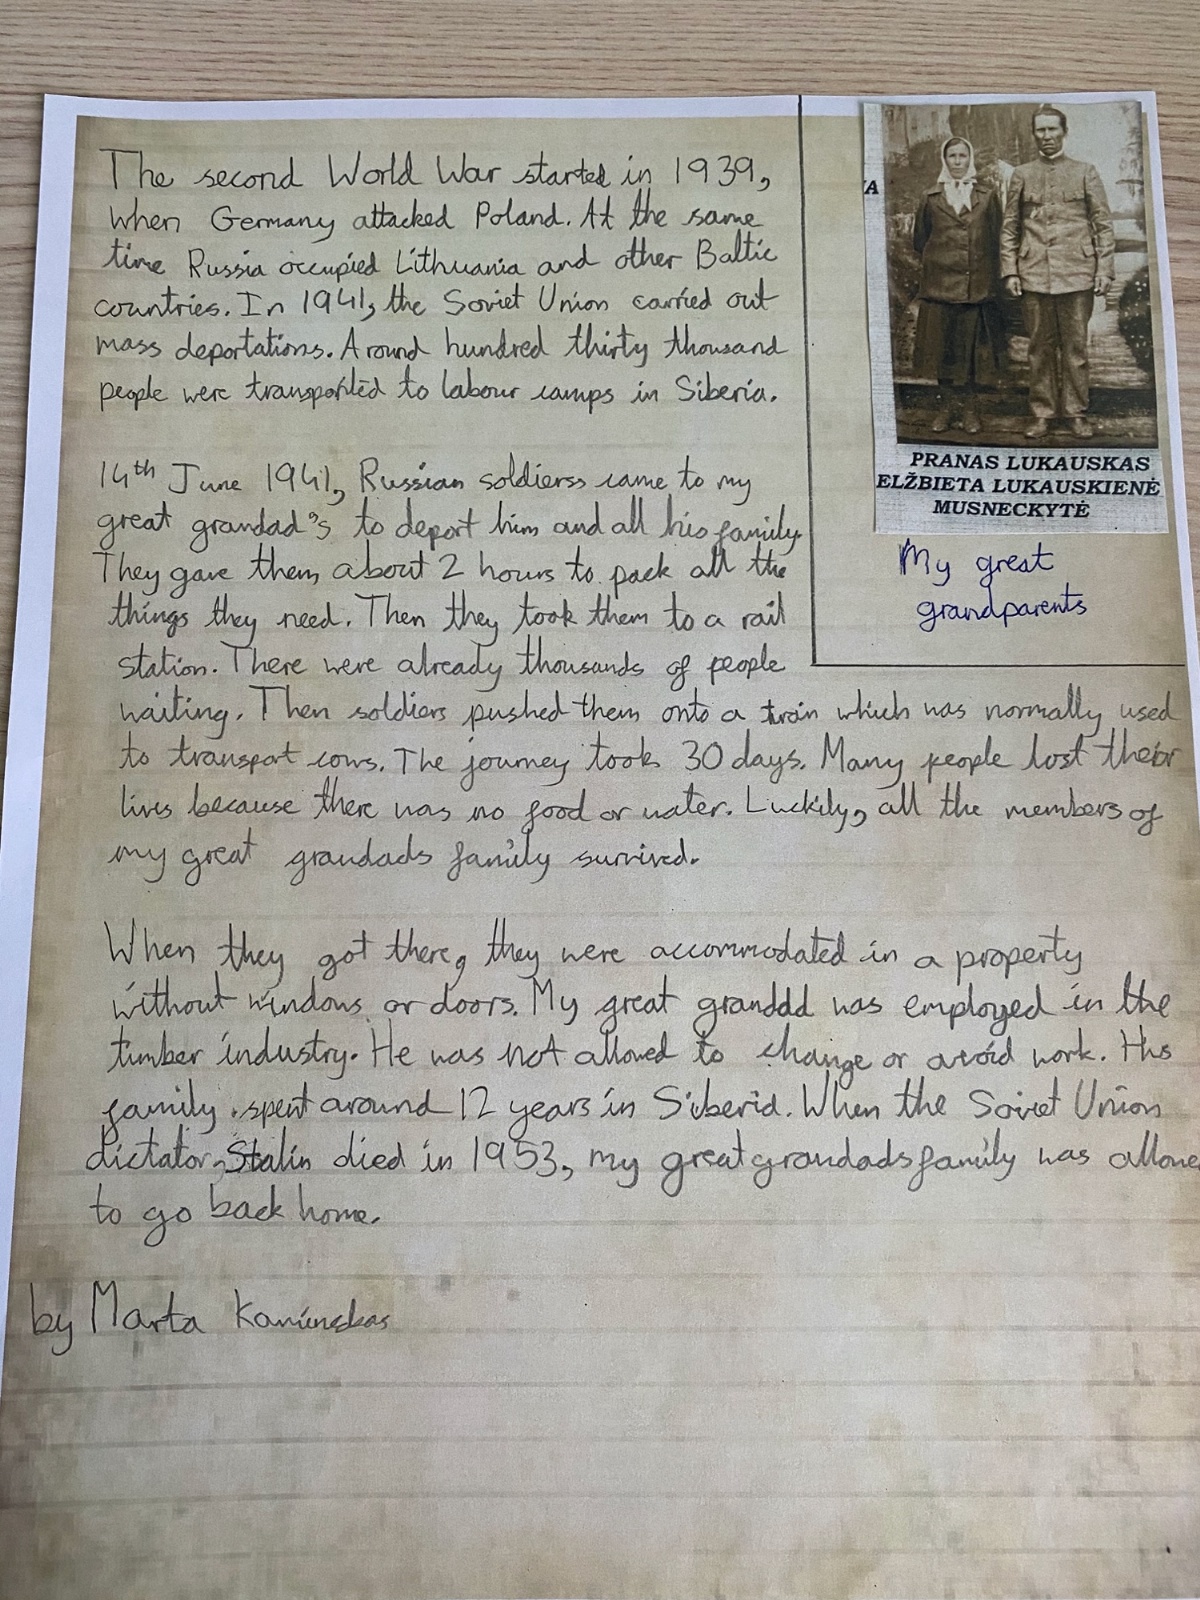 The second World War started in 1939,
when Germany attacked Poland. At the same
time Russia occupied Lithuania and other Baltic
countries. In 1941, the Soviet Union carried out
mass deportations. Around hundred thirty thousand
people were transported to labour camps in Siberia.
14th June 1941, Russian soldierss came to my
great grandad's to deport him and all his family.
They gave them about 2 hours to pack all the
things they need. Then they took them to a rail
station. There were already thousands of people
waiting. Then soldiers pushed them onto a train which was normally used
to transport cows. The journey took 30 days. Many people lost their
lives because there was no food or water. Luckily, all the members of
my great grandads family survived.
When they got there, they were accommodated in a property
without windows or doors. My great grandad was employed in the
timber industry. He was not allowed to change or avoid work. His
family spent around 12 years in Siberia. When the Soviet Union
dictator, Stalin died in 1953, my great grandads family was allowe
to go back home.
by Marta Kaminskas
A
PRANAS LUKAUSKAS
ELŽBIETA LUKAUSKIENĖ
MUSNECKYTĖ
My great
grandparents